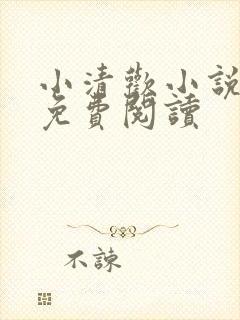 小清歡小說
免費閱讀
不諫